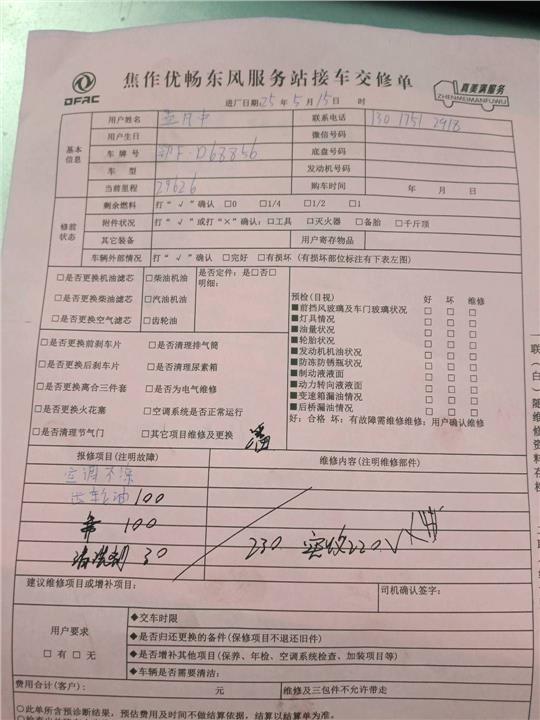 DFAC
焦作优畅东风服务站接车交修单
真美满服务
ZHENMEIMANFUWU
进厂日期 25 年 5 月 15 日 时
基本信息
用户姓名 联系电话 130 1751 2918
用户生日 微信号码
车 牌 号 D68856 底盘号码
车 型 发动机号码
当前里程 29626 购车时间 年 月 日
修前状态
剩余燃料 打“√”确认 □0 □1/4 □1/2 □1
附件状况 打“√”或打“×”确认：□工具 □灭火器 □备胎 □千斤顶
其它装备 用户寄存物品
车辆外部情况 打“√”确认 □完好 □有损坏（有损坏部位标注有下表左图）
□是否更换机油滤芯 □柴油机油 是否定件：是□否□
□是否更换柴油滤芯 □汽油机油 明细：
□是否更换空气滤芯 □齿轮油
□是否更换前刹车片 □是否清理排气筒
□是否更换后刹车片 □是否清理尿素箱
□是否更换离合三件套 □是否为电气维修
□是否更换火花塞 □空调系统是否正常运行
□是否清理节气门 □其它项目维修及更换
预检（目视） 好 坏 维修
■前挡风玻璃及车门玻璃状况 □ □ □
■灯具情况 □ □ □
■油量状况 □ □ □
■轮胎状况 □ □ □
■发动机机油状况 □ □ □
■防冻防锈瓶状况 □ □ □
■制动液液面 □ □ □
■动力转向液液面 □ □ □
■变速箱漏油情况 □ □ □
■后桥漏油情况 □ □ □
好：合格 坏：有故障需维修维修：用户确认维修
报修项目（注明故障） 维修内容（注明维修部件）
空调不凉
齿轮油 100
100
清洗剂 30
230 实收220√
建议维修项目或增补项目： 司机确认签字：
用户要求
□ 有 □ 无
◆交车时限
◆是否归还更换的备件（保修项目不退还旧件）
◆是否增补其他项目（保养、年检、空调系统检查、加装项目等）
◆车辆是否需要清洁：
费用合计（客户）： 元 维修及三包件不允许带走
○此单所含预诊断结果，预估费用及时间不做结算依据，结算以结算单为准。